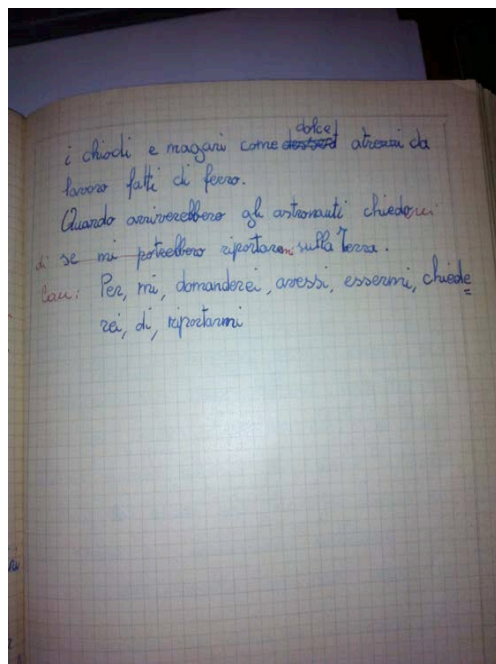 i chiodi e magari come dolce attrezzi da
lavoro fatti di ferro.
Quando arriverebbero gli astronauti chiederei
di se mi potrebbero riportarmi sulla Terra.
Per, mi, domanderei, avessi, essermi, chiede
rei, di, riportarmi